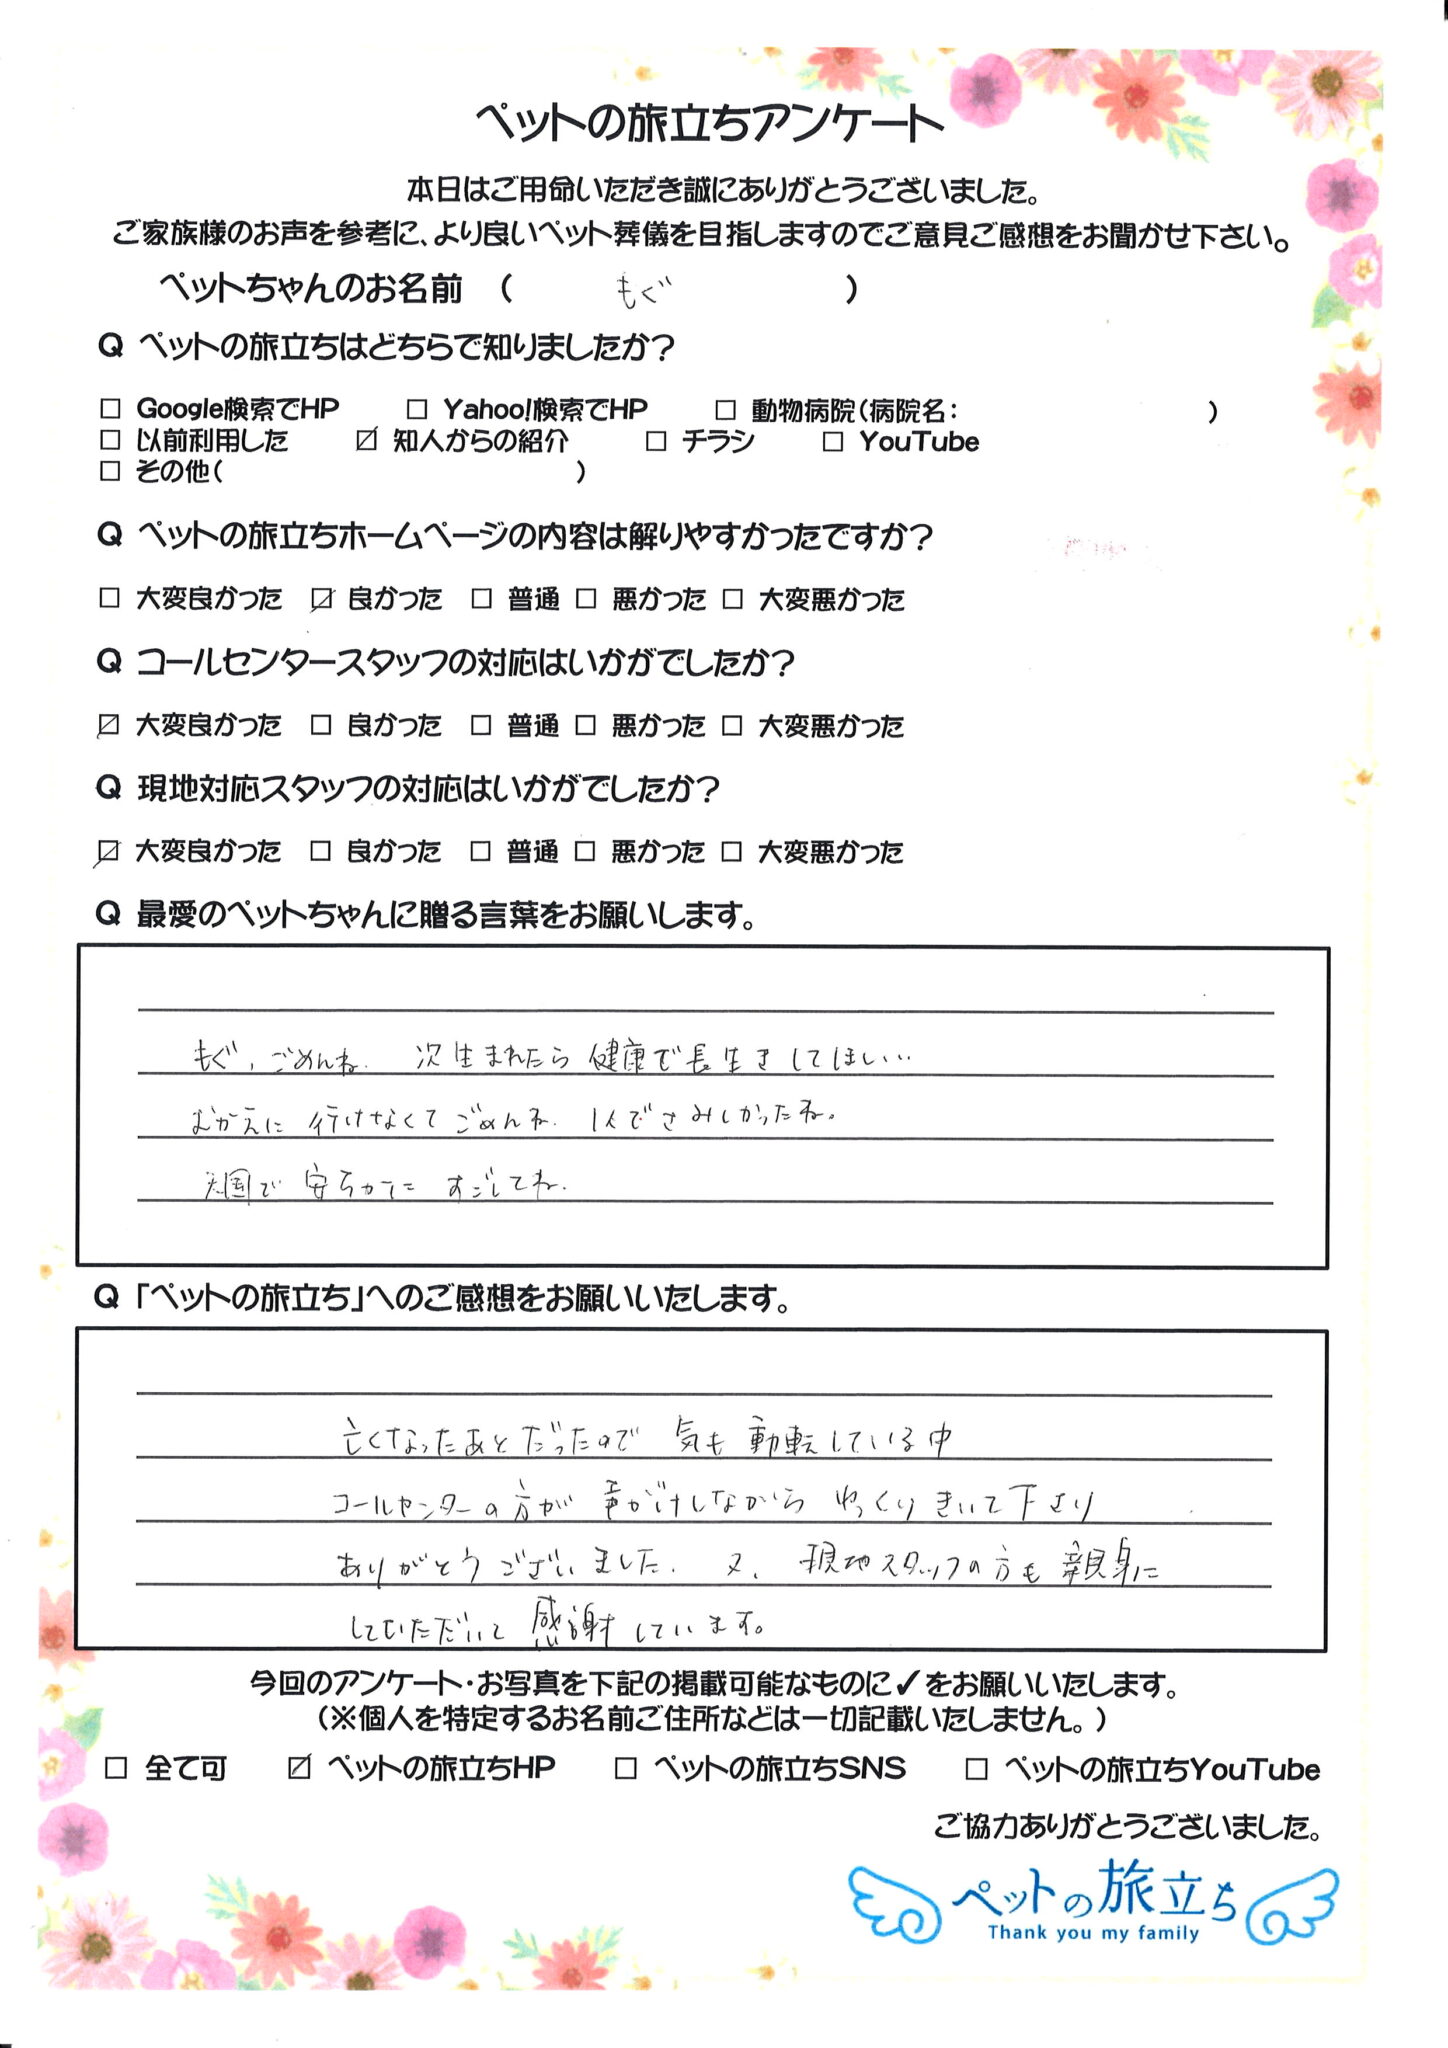 ペットの旅立ちアンケート
本日はご用命いただき誠にありがとうございました。
ご家族様のお声を参考に、より良いペット葬儀を目指しますのでご意見ご感想をお聞かせ下さい。
ペットちゃんのお名前 ( もぐ )
Q ペットの旅立ちはどちらで知りましたか?
☐ Google検索でHP ☐ Yahoo!検索でHP ☐ 動物病院(病院名: )
☐ 以前利用した ☑ 知人からの紹介 ☐ チラシ ☐ YouTube
☐ その他( )
Q ペットの旅立ちホームページの内容は解りやすかったですか?
☐ 大変良かった ☑ 良かった ☐ 普通 ☐ 悪かった ☐ 大変悪かった
Q コールセンタースタッフの対応はいかがでしたか?
☑ 大変良かった ☐ 良かった ☐ 普通 ☐ 悪かった ☐ 大変悪かった
Q 現地対応スタッフの対応はいかがでしたか?
☑ 大変良かった ☐ 良かった ☐ 普通 ☐ 悪かった ☐ 大変悪かった
Q 最愛のペットちゃんに贈る言葉をお願いします。
もぐ、ごめんね. 次生まれたら健康で長生きしてほしい…
むかえに行けなくてごめんね. 1人でさみしかったね。
天国で安らかに すごしてね.
Q 「ペットの旅立ち」へのご感想をお願いいたします。
亡くなったあとだったので 気も動転している中
コールセンターの方が 声がけしながら ゆっくりきいて下さり
ありがとうございました. 又、現地スタッフの方も親身に
していただいて 感謝しています。
今回のアンケート・お写真を下記の掲載可能なものに✓をお願いいたします。
(※個人を特定するお名前ご住所などは一切記載いたしません。)
☐ 全て可 ☑ ペットの旅立ちHP ☐ ペットの旅立ちSNS ☐ ペットの旅立ちYouTube
ご協力ありがとうございました。
ペットの旅立ち
Thank you my family